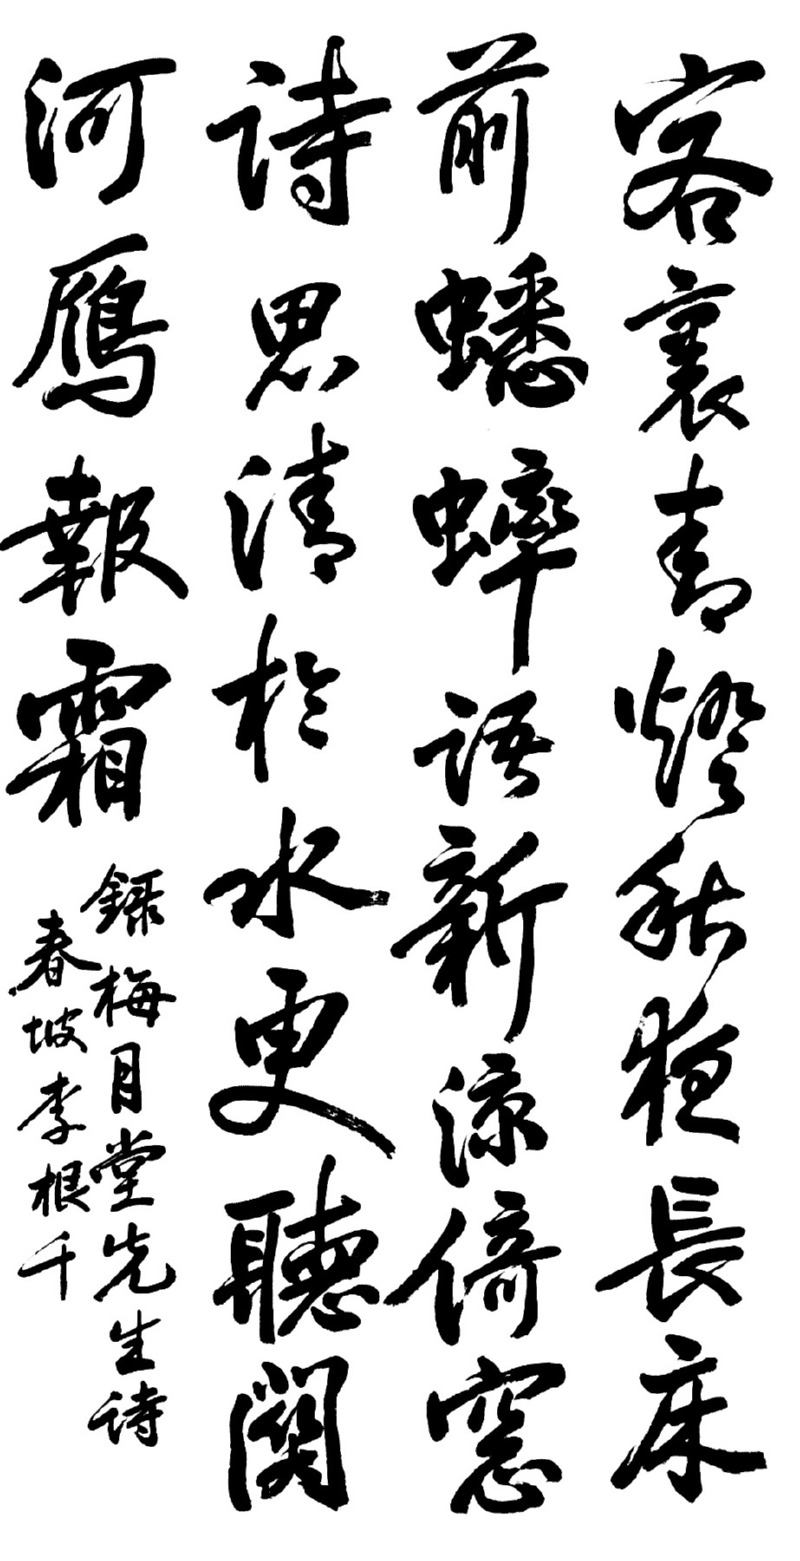 客裏青燈秋夜長床
前蟋蟀語新涼倚窓
詩思清於水更聽關
河鴈報霜
錄梅月堂先生詩
春坡李根千